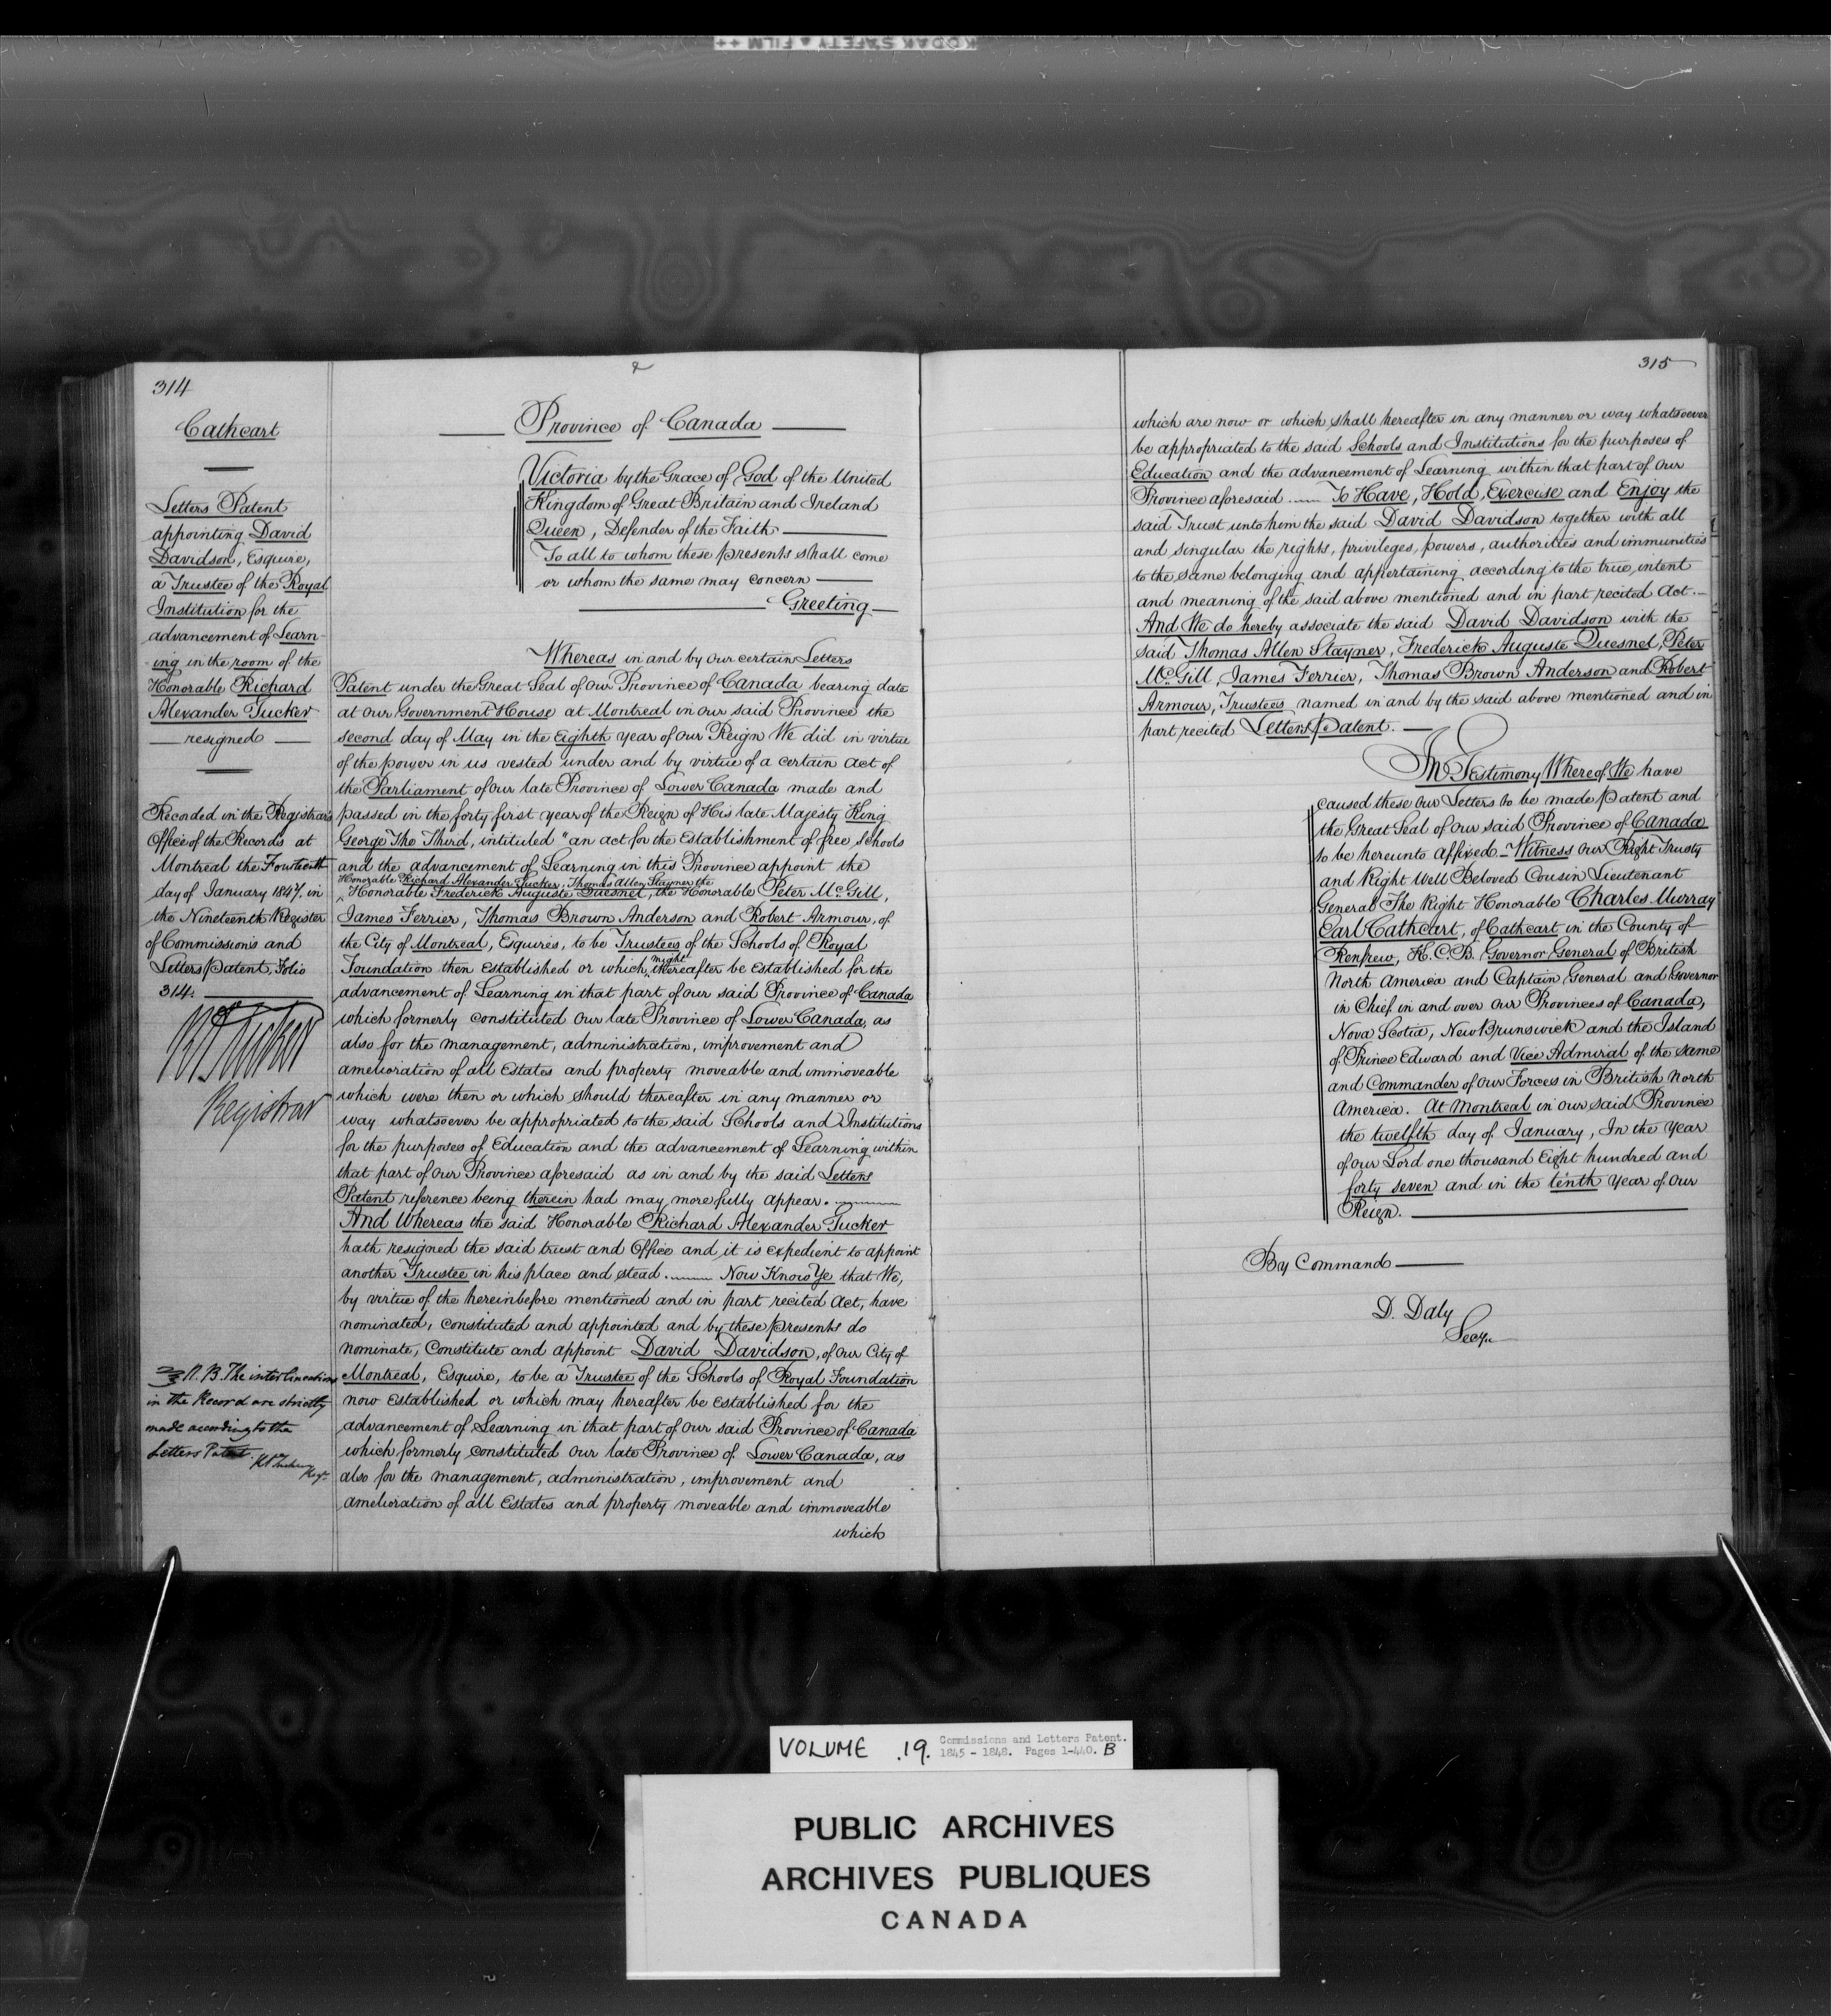 KODAK SAFETY FILM ++
314
Cathcart
Letters Patent
appointing David
Davidson, Esquire,
a Trustee of the Royal
Institution for the
advancement of Learn-
-ing in the room of the
Honorable Richard
Alexander Tucker
resigned
Recorded in the Registrar's
Office of the Records at
Montreal the Fourteenth
day of January 1847. in
the Nineteenth Register
of Commissions and
Letters Patent, Folio
314.
RA Tucker
Registrar
N.B. The interlineations
in the Record are strictly
made according to the
Letters Patent.
RA Tucker
Regr.
Province of Canada
Victoria by the Grace of God of the United
Kingdom of Great Britain and Ireland
Queen, Defender of the Faith
To all to whom these presents shall come
or whom the same may concern
Greeting
Whereas in and by our certain Letters
Patent under the Great Seal of our Province of Canada bearing date
at our Government House at Montreal in our said Province the
second day of May in the Eighth year of our Reign We did in virtue
of the power in us vested under and by virtue of a certain act of
the Parliament of our late Province of Lower Canada made and
passed in the forty first year of the Reign of His late Majesty King
George The Third, intituled "an act for the Establishment of free schools
and the advancement of Learning in this Province appoint the
Honorable Richard Alexander Tucker, Thomas Allen Stayner the
Honorable Frederick Auguste Quesnel, the Honorable Peter McGill,
James Ferrier, Thomas Brown Anderson and Robert Armour, of
the City of Montreal, Esquires, to be Trustees of the Schools of Royal
might
Foundation then established or which thereafter be established for the
advancement of Learning in that part of our said Province of Canada
which formerly constituted our late Province of Lower Canada, as
also for the management, administration, improvement and
amelioration of all Estates and property moveable and immoveable
which were then or which should thereafter in any manner or
way whatsoever be appropriated to the said Schools and Institutions
for the purposes of Education and the advancement of Learning within
that part of our Province aforesaid as in and by the said Letters
Patent reference being therein had may more fully appear.
And Whereas the said Honorable Richard Alexander Tucker
hath resigned the said trust and Office and it is expedient to appoint
another Trustee in his place and stead. Now Know Ye that We,
by virtue of the hereinbefore mentioned and in part recited Act, have
nominated, constituted and appointed and by these presents do
nominate, Constitute and appoint David Davidson, of our City of
Montreal, Esquire, to be a Trustee of the Schools of Royal Foundation
now established or which may hereafter be established for the
advancement of Learning in that part of our said Province of Canada
which formerly constituted our late Province of Lower Canada, as
also for the management, administration, improvement and
amelioration of all Estates and property moveable and immoveable
which
315
which are now or which shall hereafter in any manner or way whatsoever
be appropriated to the said Schools and Institutions for the purposes of
Education and the advancement of Learning within that part of our
Province aforesaid. To Have, Hold, Exercise and Enjoy the
said Trust unto him the said David Davidson together with all
and singular the rights, privileges, powers, authorities and immunities
to the same belonging and appertaining according to the true intent
and meaning of the said above mentioned and in part recited Act.
And We do hereby associate the said David Davidson with the
said Thomas Allen Stayner, Frederick Auguste Quesnel, Peter
McGill, James Ferrier, Thomas Brown Anderson and Robert
Armour, Trustees named in and by the said above mentioned and in
part recited Letters Patent.
In Testimony Whereof We have
caused these our Letters to be made Patent and
the Great Seal of our said Province of Canada
to be hereunto affixed - Witness our Right Trusty
and Right Well Beloved Cousin Lieutenant
General The Right Honorable Charles Murray
Earl Cathcart, of Cathcart in the County of
Renfrew, K.C.B. Governor General of British
North America and Captain General and Governor
in Chief in and over our Provinces of Canada,
Nova Scotia, New Brunswick and the Island
of Prince Edward and Vice Admiral of the same
and Commander of our Forces in British North
America. At Montreal in our said Province
the twelfth day of January, In the Year
of our Lord one thousand Eight hundred and
forty seven and in the tenth Year of our
Reign.
By Command
D. Daly
Secy.
VOLUME .19. Commissions and Letters Patent.
1845 - 1848. Pages 1-440. B
PUBLIC ARCHIVES
ARCHIVES PUBLIQUES
CANADA